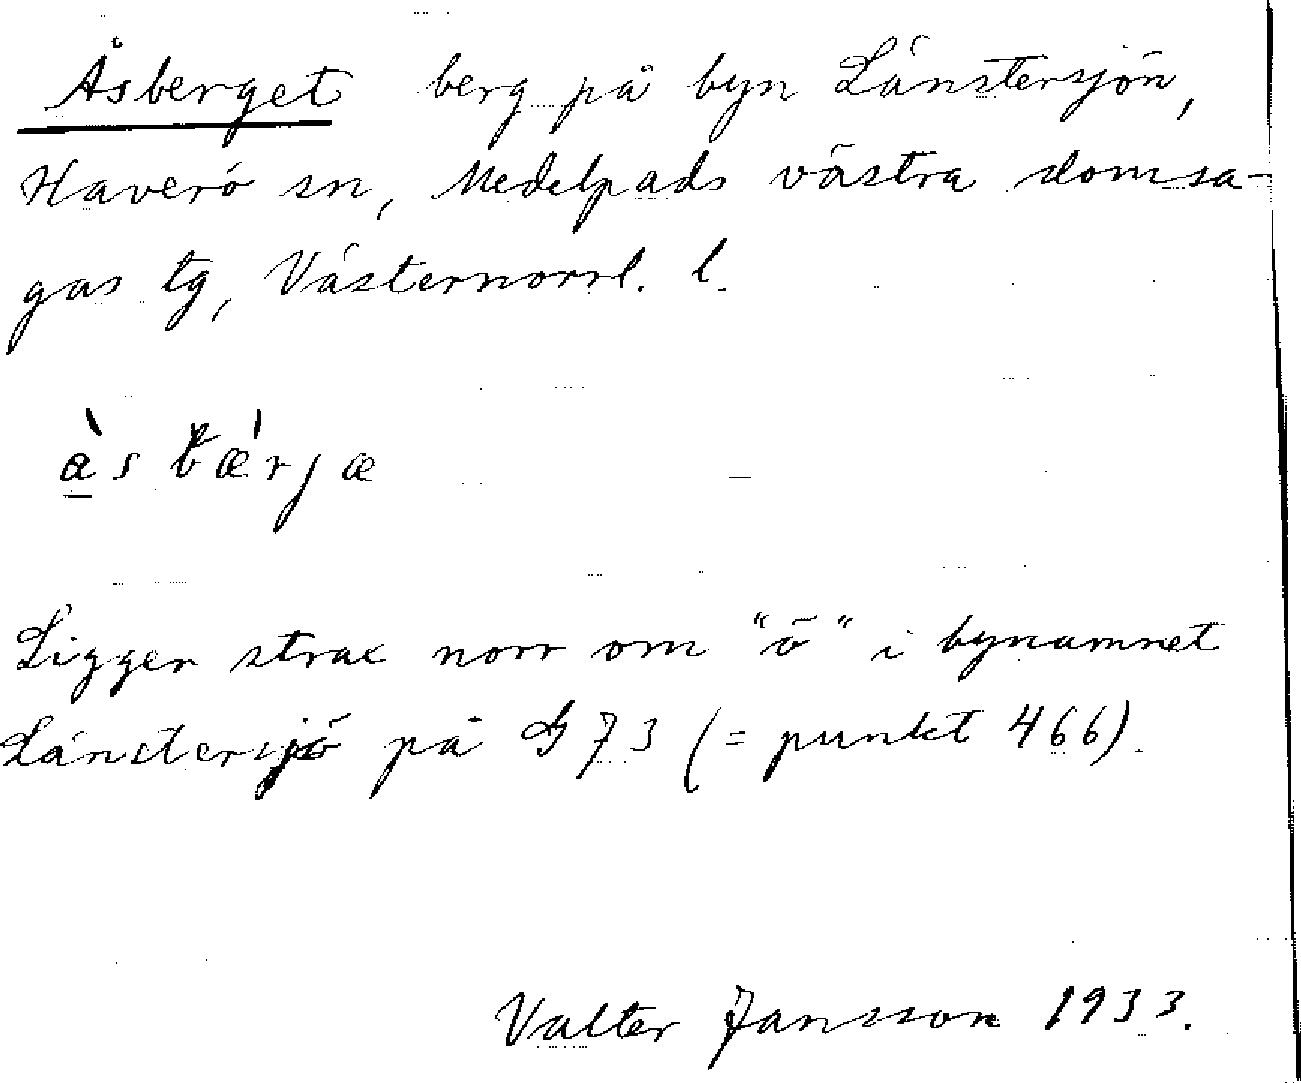 Åsberget berg på byn Länstersjön,
Haverö sn, Medelpads västra domsa-
gas tg, Västernorrl. l.
à̱s bǽrjæ
Ligger strax norr om "ö" i bynamnet
Länstersjö på G 73 (= punkt 466).
Valter Jansson 1933.